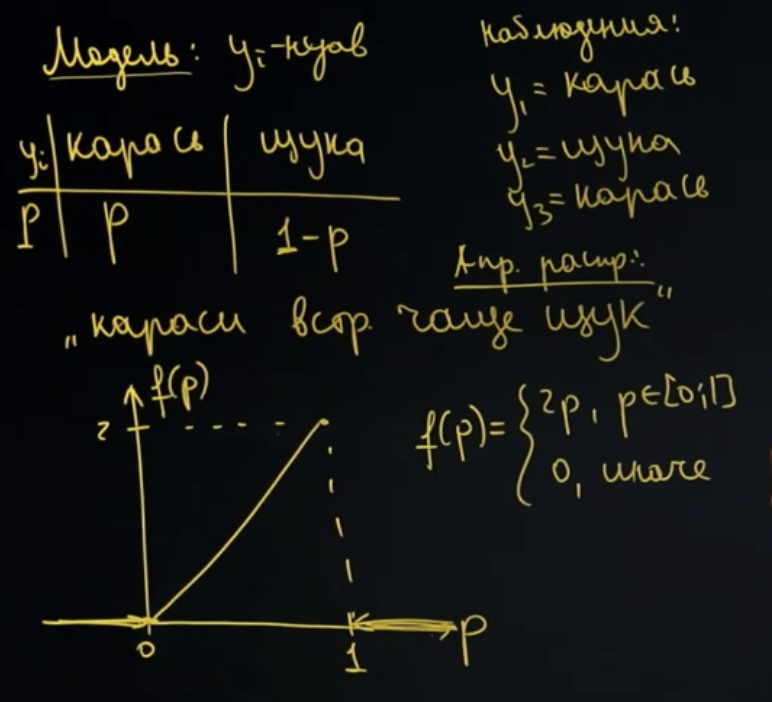 Модель: yᵢ - незав
yᵢ карась щука
P p 1-p
Наблюдения:
y₁ = карась
y₂ = щука
y₃ = карась
Апр. распр.:
„караси встр. чаще щук“
f(p)
2
0 1 p
f(p) = { 2p, p∈[0;1]
0, иначе